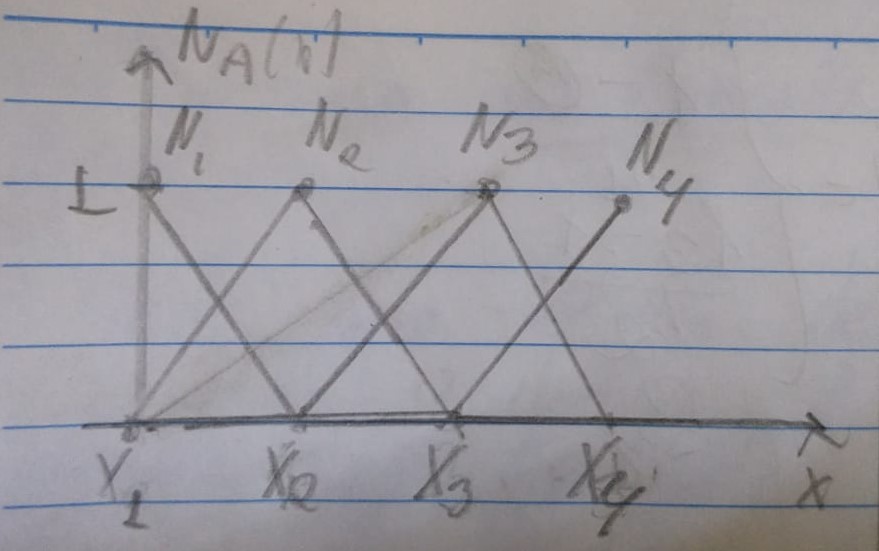 N_A(h)
N_1 N_2 N_3 N_4
1
X_1 X_2 X_3 X_4 x